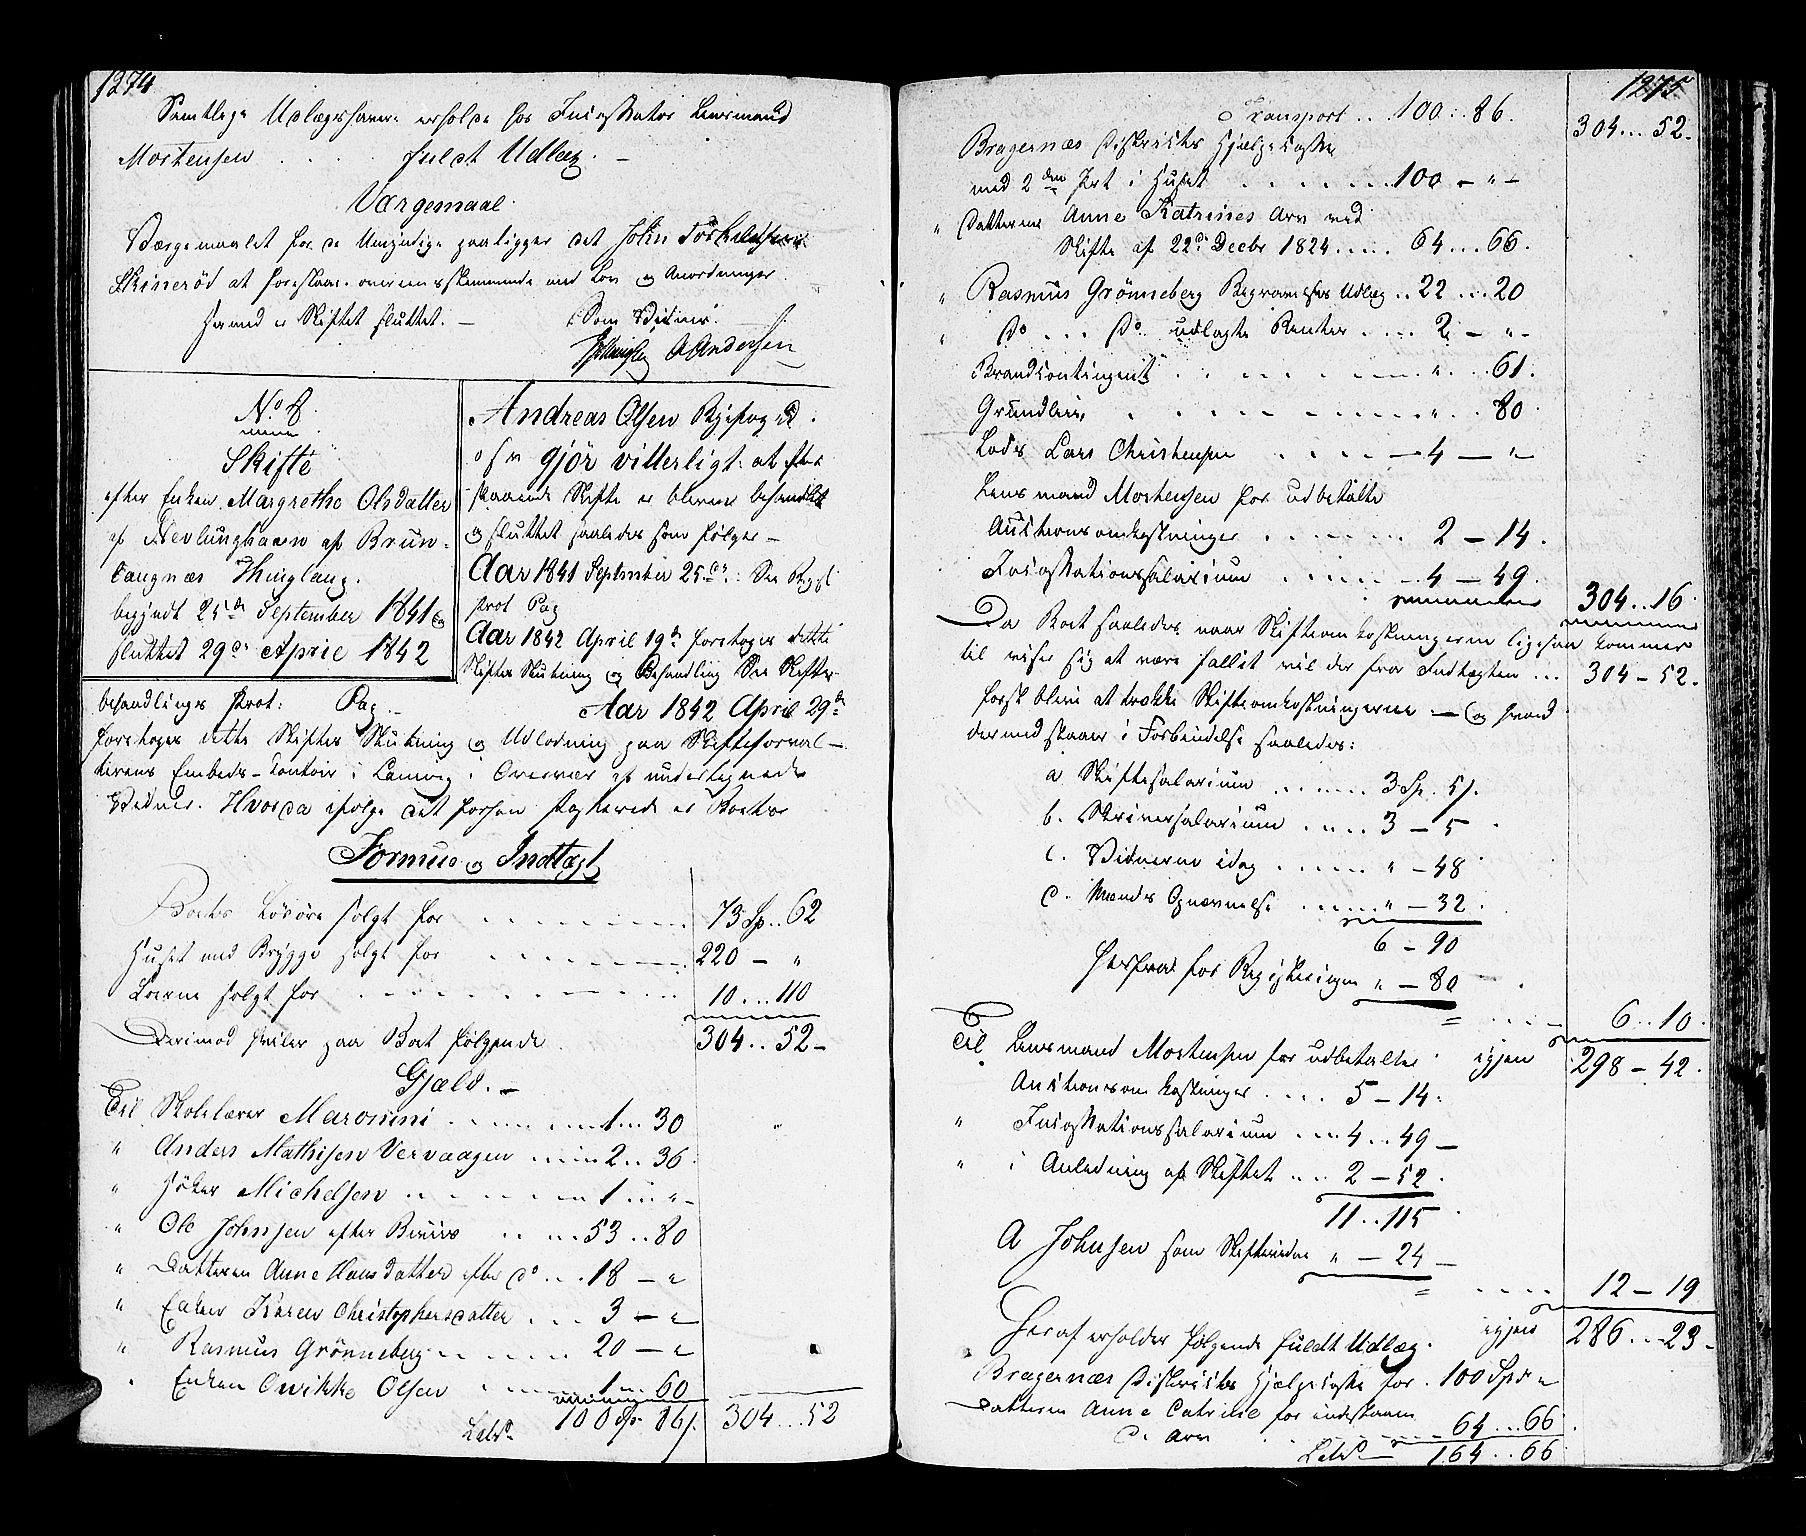 1274
Samtlige Udlægshavere erholde hos Incassator Lensmand
Mortensen . . . . fuldt Udlæg. –
Værgemaal.
Værgemaalet for de Umyndige paaligger det John Torkildsen
Skinnerød at forestaae overensstemmende med Lov og Anordninger
Hermed er Skiftet sluttet. – Som Vidner.
A Andersen
No 8.
Skifte
efter Enken Margrethe Olsdatter
af Nevlunghavn af Brun-
langnæs Thinglaug.
begyndt 25de September 1841 og
sluttet 29de April 1842
Andreas Olsen Byfoged
o s v gjör vitterligt: at efter
staaende Skifte er bleven behandlet
og sluttet saaledes som følger –
Aar 1841 September 25de: See Regist
Prot Pag
Aar 1842 April 19de foretoges dette
Skiftes Slutning og Behandling See Skifte-
behandlings Prot: Pag –
Aar 1842 April 29de
foretoges dette Skiftes Slutning og Udlodning paa Skifteforval-
terens Embeds-Contoir i Laurvig i Overvær af undertegnede
Vidner. Hvorda ifølge det forhen passerede er Boets
Formue og Indtægt
Boets Løsøre solgt for . . . . 73 Sp. 62
Huset med Brygge solgt for . . . . 220 – "
solgt for . . . . 10 .. 110
304 .. 52 –
Derimod hviler paa Boet følgende
Gjæld. –
Til Skolelærer Maronini . . . . 1 .. 30
" Anders Mathisen Vervaagen . . . . 2 .. 36
" Høker Michelsen . . . . 1 .. " –
" Ole Johnsen efter Beviis . . . . 53 .. 80
" Datteren Anne Hansdatter efter do . . . 18 – "
" Enken Karen Christophersdatter . . . 3 – "
" Rasmus Grönneberg . . . . 20 – "
" Enken Olsen . . . . 1 .. 60
Lats 100 Sp 86 s. 304 .. 52
1275
Transport .. 100 .. 86. 304 .. 52.
Bragernæs Districts Hjælpecasse
med 2den Prt i Huset . . . . 100 – " –
" Datteren Anne Katrines Arv ved
Skifte af 22de Decbr 1824 . . . . 64 .. 66.
" Rasmus Grönneberg Begravelses Udlæg .. 22 .. 20
" Do . . . Do. udlagte Renter . . . . 2 – " –
Brandcontingent . . . . " .. 61.
Grundleie . . . . " .. 80
Lods Lars Christensen . . . . 4 – "
Lensmand Mortensen for udbetalte
Auctionsomkostninger . . . . 2 – 14.
Incassationssalarium . . . . 4 – 49. 304 .. 16
Da Boet saaledes naar Skifteomkostningerne ligesaa kommer
til viser sig at være fallit vil der fra Indtægten ... 304 – 52.
først blive at trække Skifteomkostningerne – og hvad
dermed staaer i Forbindelse saaledes:
a Skiftesalarium . . . . 3 Sp. 51.
b. Skriversalarium . . . . 3 – 5
c. Vidnerne idag . . . . " – 48
d. Mænds Opnævnelse . . . . " – 32
6 – 90
Herfra for Registeringen " – 80
6 .. 10.
Til Lensmand Mortensen for udbetalte igjen 298 – 42.
Auctionsomkostninger . . . . 5 – 14.
" Incassationssalarium . . . . 4 .. 49 –
" i Anledning af Skiftet . . . 2 – 52
11 .. 115
A Johnsen som Skiftevidne " – 24 –
12 – 19
Heraf erholder følgende fuldt Udlæg. igjen 286 .. 23 –
Bragernæs Districts Hjælpecasse for . 100 Spd "
Datteren Anne Catrine for indestaaen
d. Arv . . . . 64 .. 66
Lats 164 .. 66